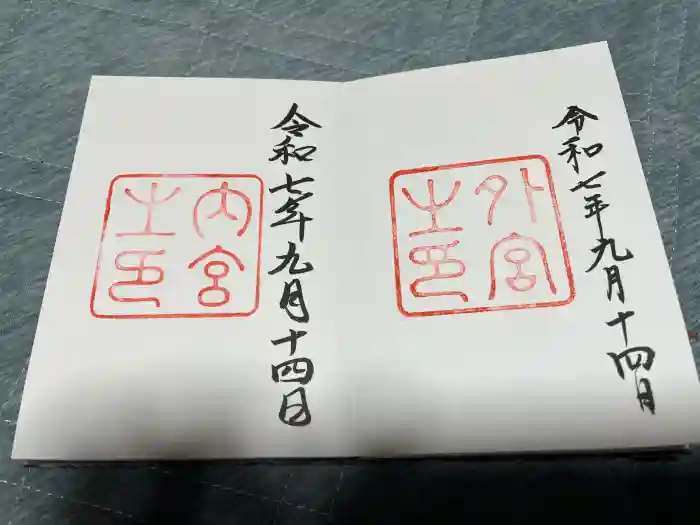 令和七年九月十四日
外宮之印
令和七年九月十四日
内宮之印